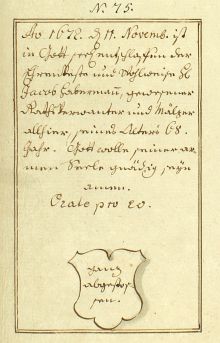 N: 75.
Ao 1672. d. 11. Novemb. ist
in Gott seel. entschlafen der
Ehrenveste und Wohlweise H.
Jacob Habermañ, gewesener
Rathsverwanter und Mälzer
allhier, seines Alters 68.
Jahr. Gott wolle seiner ar-
men Seele gnädig seyn
amen.
Orate pro eo.
ganz
abgestos-
sen.